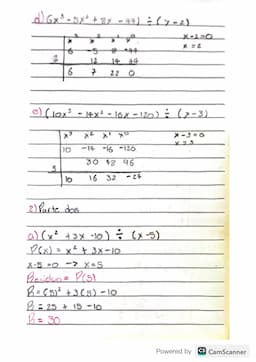 d) (6x³ - 5x² + 8x - 44) ÷ (x - 2)
x³ x² x¹ x⁰
x - 2 = 0
6 -5 8 -44
x = 2
2 12 14 44
6 7 22 0
e) (10x³ - 14x² - 16x - 120) ÷ (x - 3)
x³ x² x¹ x⁰
x - 3 = 0
10 -14 -16 -120
x = 3
3 30 48 96
10 16 32 -24
2) Parte dos
a) (x² + 3x - 10) ÷ (x - 5)
P(x) = x² + 3x - 10
x - 5 = 0 -> x = 5
Residuo = P(5)
R = (5)² + 3(5) - 10
R = 25 + 15 - 10
R = 30
Powered by CS CamScanner